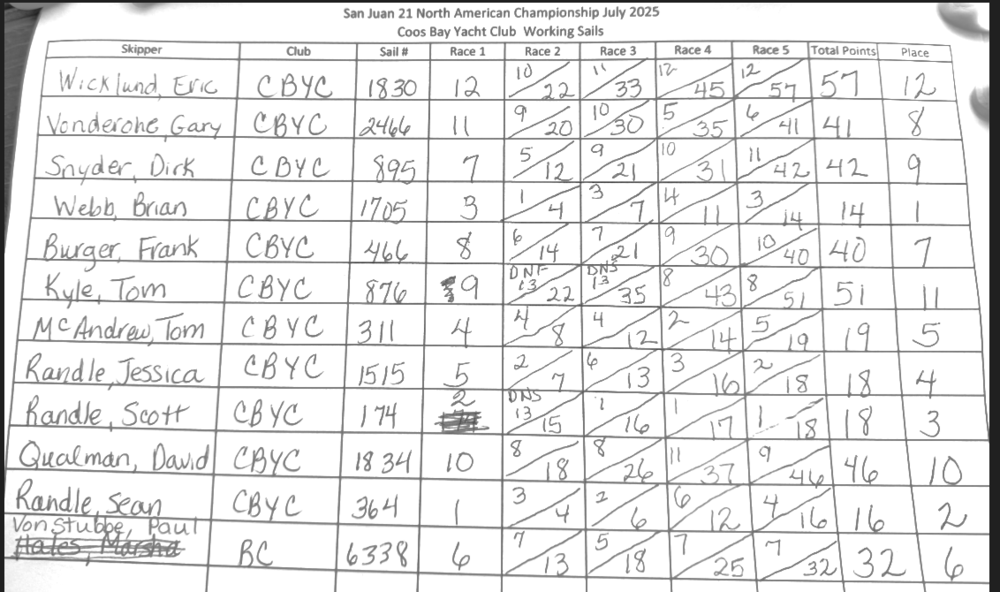 San Juan 21 North American Championship July 2025
Coos Bay Yacht Club Working Sails
Skipper Club Sail # Race 1 Race 2 Race 3 Race 4 Race 5 Total Points Place
Wicklund, Eric CBYC 1830 12 10/22 11/33 12/45 12/57 57 12
Vonderohe, Gary CBYC 2466 11 9/20 10/30 5/35 6/41 41 8
Snyder, Dirk CBYC 895 7 5/12 9/21 10/31 11/42 42 9
Webb, Brian CBYC 1705 3 1/4 3/7 4/11 3/14 14 1
Burger, Frank CBYC 466 8 6/14 7/21 9/30 10/40 40 7
Kyle, Tom CBYC 876 9 DNF 13/22 DNS 13/35 8/43 8/51 51 11
McAndrew, Tom CBYC 311 4 4/8 4/12 2/14 5/19 19 5
Randle, Jessica CBYC 1515 5 2/7 6/13 3/16 2/18 18 4
Randle, Scott CBYC 174 2 DNS 13/15 1/16 1/17 1/18 18 3
Qualman, David CBYC 1834 10 8/18 8/26 11/37 9/46 46 10
Randle, Sean CBYC 364 1 3/4 2/6 6/12 4/16 16 2
Von Stubbe, Paul
Hales, Marsha BC 6338 6 7/13 5/18 7/25 7/32 32 6